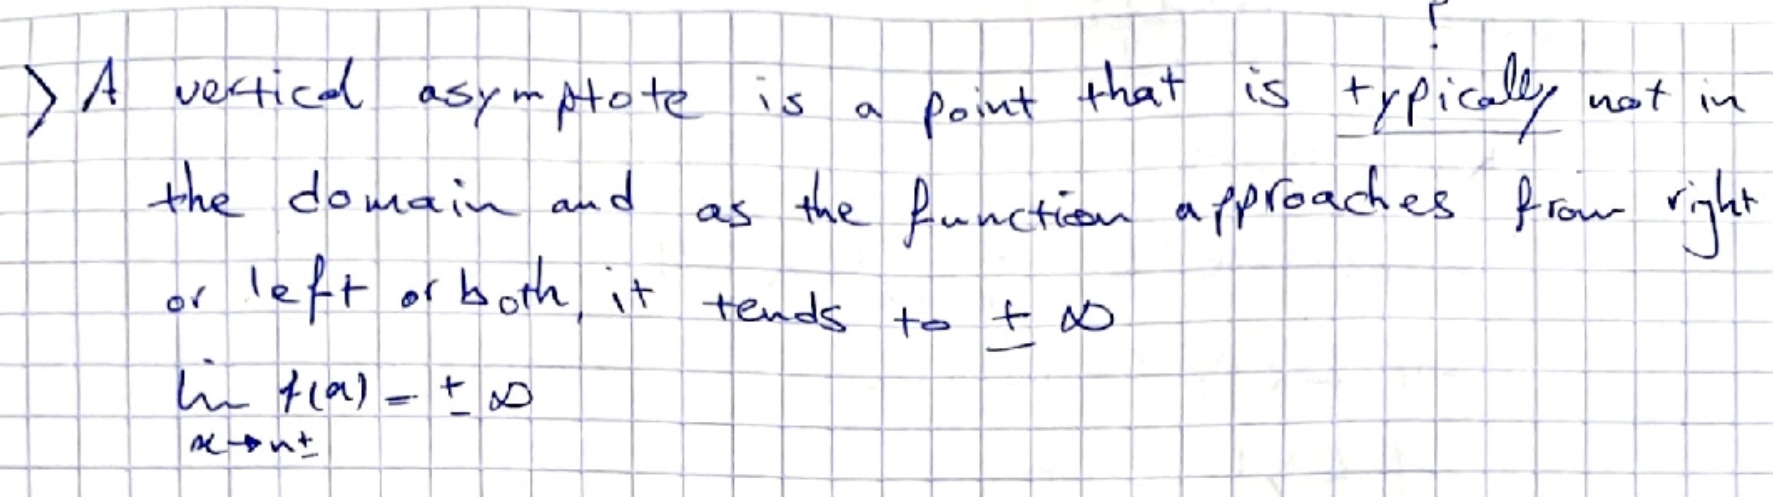 ?
> A vertical asymptote is a point that is typically not in
the domain and as the function approaches from right
or left or both, it tends to ± ∞
lim f(a) = ± ∞
x→n±